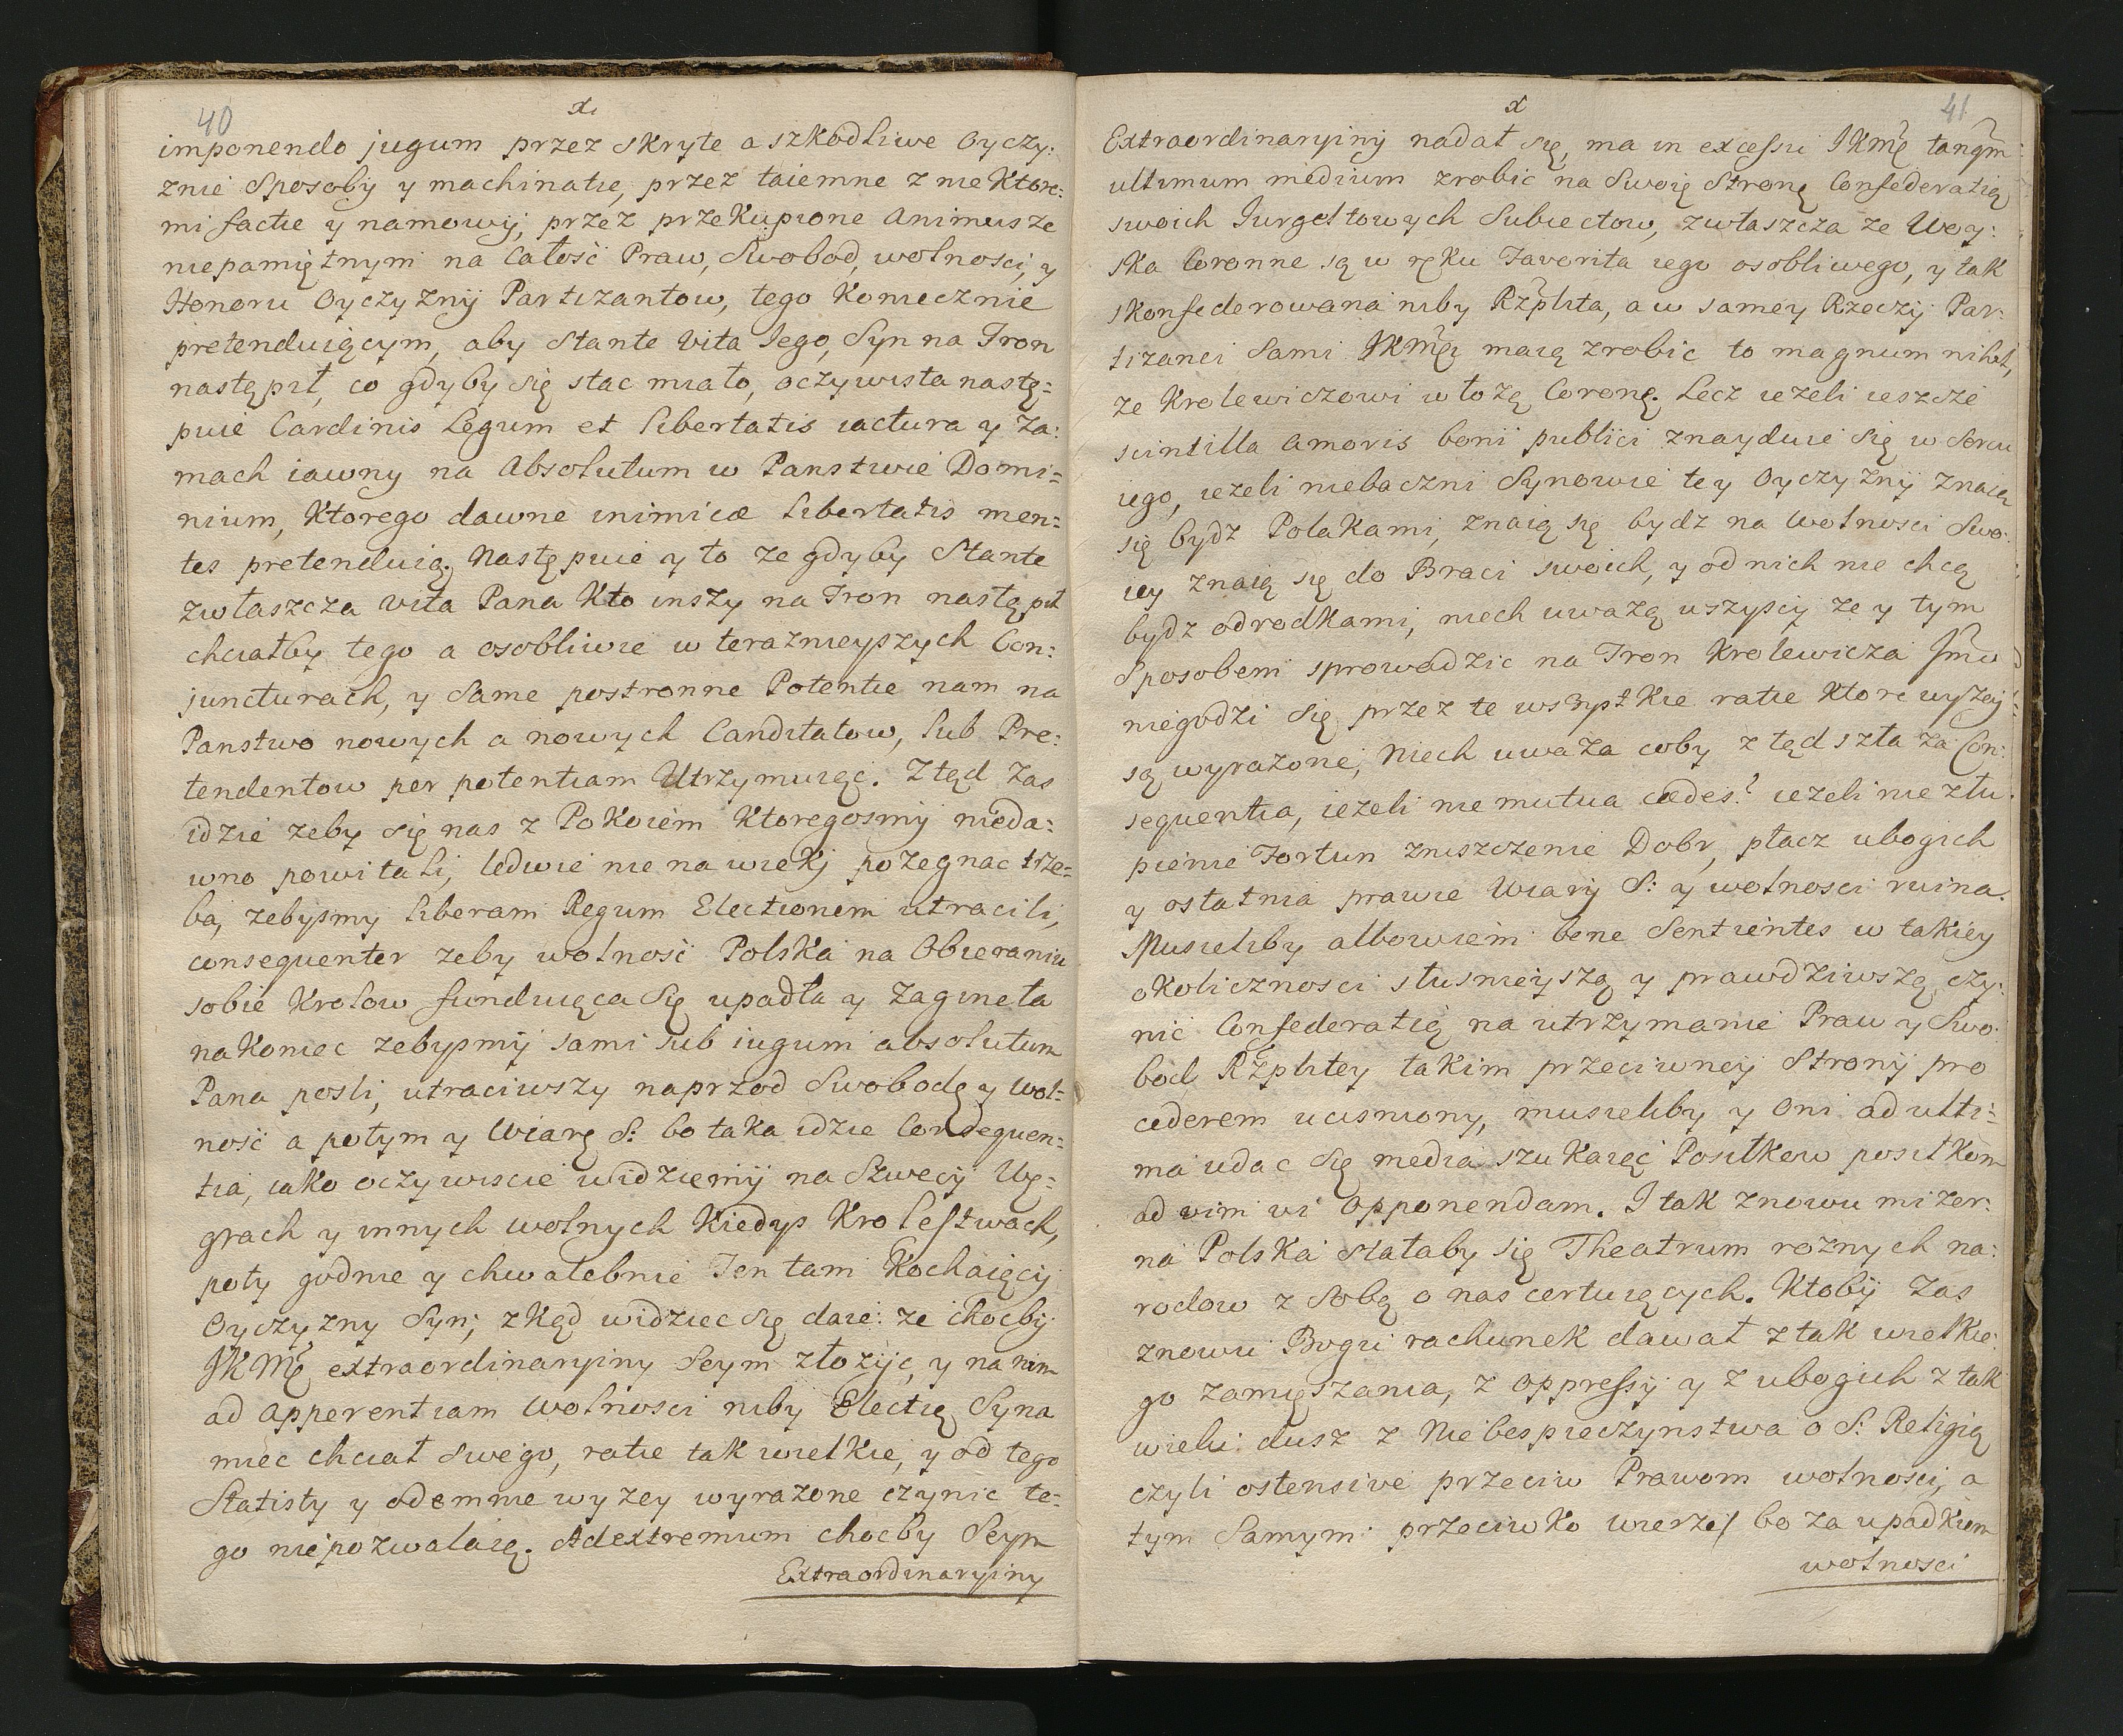 40
x
imponendo jugum przez skryte a szkodliwe Oyczy:
znie Sposoby y machinatie, przez taiemne z niektore:
mi factie y namowy, przez przekupione Animusze
niepamiętnym na Całość Praw, Swobod, wolnosci, y
Honoru Oyczyzny Partizantow, tego koniecznie
pretenduiącym, aby Stante Vita Jego, Syn na Tron
nastąpił, co gdyby się stac miało, oczywista nastę=
puie Cardinis Legum et Libertatis iactura y Za:
mach iawny na Absolutum w Panstwie Domi=
nium, Ktorego dawne inimicæ Libertatis men=
tes pretenduią. Następuie y to ze gdyby Stante
zwłaszcza vita Pana Kto inszy na Tron nastąpił
chciałby tego a osobliwie w teraznieyszych Con:
juncturach, y same postronne Potentie nam na
Panstwo nowych a nowych Canditatow, lub Pre:
tendentow per potentiam Utrzymuiąc. Ztąd zas
idzie zeby się nas z Pokoiem Ktoregosmy nieda=
wno powitali, ledwie nie na wieki pozegnac trze=
ba, zebysmy Liberam Regum Electionem utracili,
consequenter zeby wolność Polska na Obieraniu
sobie Krolow funduiąca się upadła y Zagineła
nakoniec zebysmy sami sub iugum absolutum
Pana posli, utraciwszy naprzod Swobodę y wol=
ność a potym y Wiarę S: bo taka idzie Consequen=
tia, iako oczywiscie widziemy na Szwecyi Wę=
grach y innych wolnych kiedys Krolestwach,
poty godnie y chwalebnie Ten tam Kochaiący
Oyczyzny Syn; zkąd widziec się daie: ze choćby
JKMć extraordinaryiny Seym złozyć, y na nim
ad apperentiam Wolnosci niby Electią Syna
miec chciał swego, ratie tak wielkie, y od tego
Statisty y odemnie wyzey wyrazone czynic te=
go niepozwalaią. Ad extremum choćby Seym
Extraordinaryiny
x
41
Extraordinaryiny nadał się, ma in excessu JKMć tanqm
ultimum medium zrobic na Swoię Stronę Confederatią
swoich Jurgeltowych Subiectow, zwłaszcza ze Woy:
ska Coronne są w ręku Faworita iego osobliwego, y tak
skonfederowana niby Rzplita, a w samey Rzeczy Par:
tizanci Sami JKMci maią zrobic to magnum nihil,
ze Krolewiczowi włozą Coronę. Lecz iezeli ieszcze
scintilla Amoris boni publici znayduie się w Sercu
iego, iezeli niebaczni Synowie tey Oyczyzny Znaią
się bydz Polakami, znaią się bydz na Wolnosci Swo:
iey znaią się do Braci swoich, y od nich nie chcą
bydz odrodkami, niech uwazą wszyscy ze y tym
Sposobem sprowadzic na Tron Krolewicza Jmci
niegodzi się przez te wszystkie ratie Ktore wyzey
są wyrazone, Niech uwaza coby ztąd szła za Con:
sequentia, iezeli nie mutua cædes? iezeli nie złu:
pienie Fortun zniszczenie Dobr, płacz ubogich
y ostatnia prawie Wiary S: y wolnosci ruina.
Musieliby albowiem bene Sentientes w takiey
okolicznosci słusnieyszą y prawdziwszą czy:
nić Confederatią na utrzymanie Praw y Swo:
bod Rzplitey takim przeciwney Strony pro
cederem ucisniony, musieliby y Oni ad ulti=
ma udac się media szukaiąc Posiłkow posiłkom
ad vim vi Opponendam. I tak znowu mizer:
na Polska stałaby się Theatrum roznych na:
rodow z Sobą o nas certuiących. Ktoby zas
znowu Bogu rachunek dawał z tak wielkie:
go zamięszania, z Oppressyi y z ubogich z tak
wielu dusz z Niebespieczynstwa o S: Religią
czyli ostensive przeciw Prawom wolnosci, a
tym Samym przeciwko wierze / bo za upadkiem
wolnosci